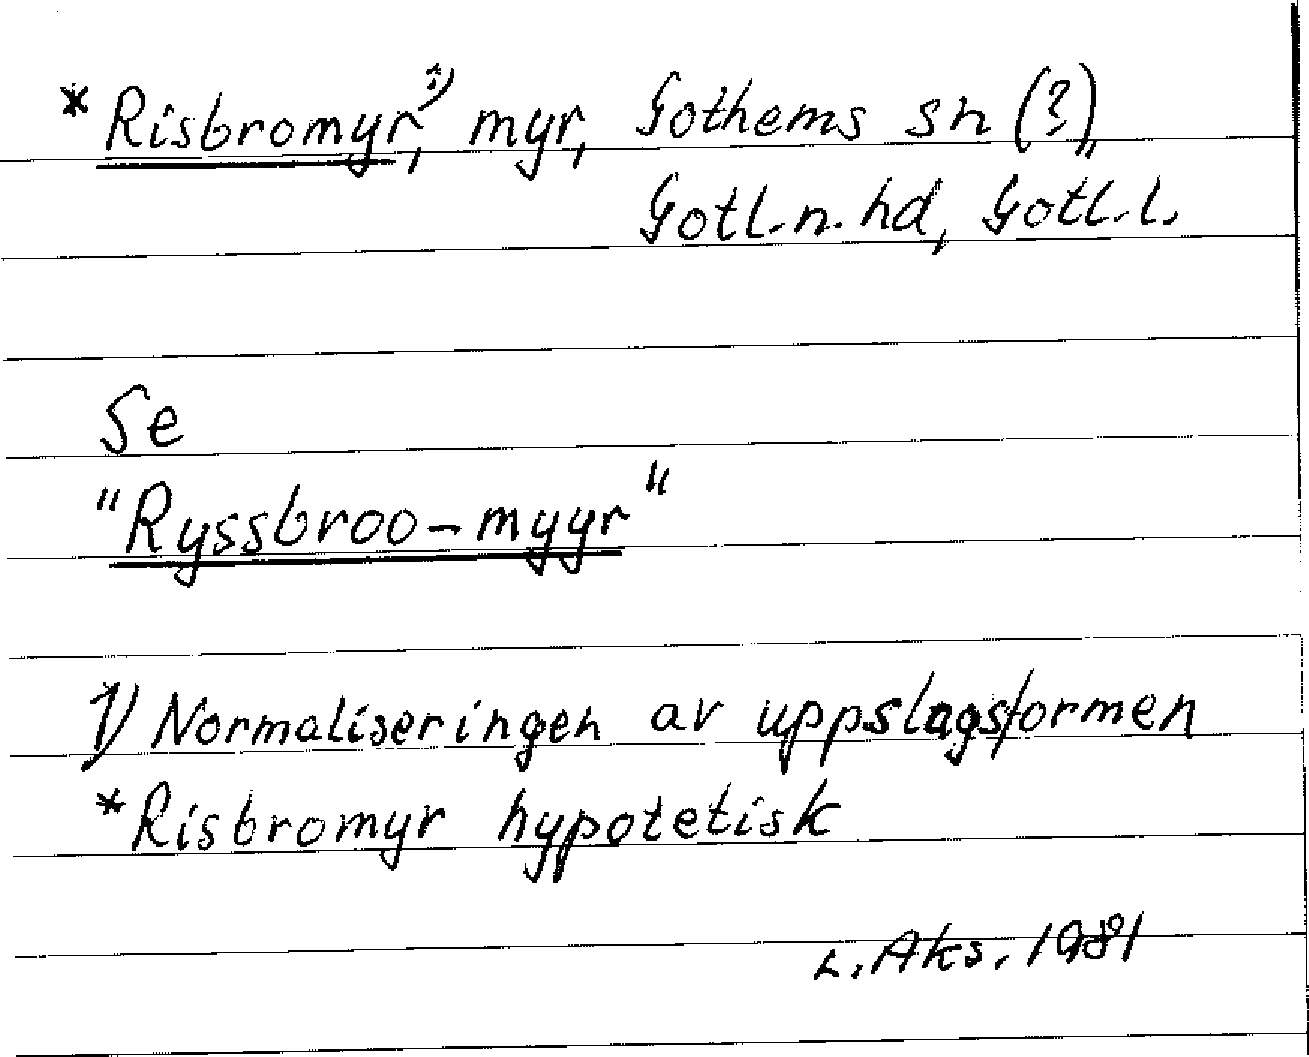 *Risbromyr,¹⁾ myr, Gothems sn (?),
Gotl. n. hd, Gotl. l.
Se
"Ryssbroo-myyr"
1) Normaliseringen av uppslagsformen
*Risbromyr hypotetisk
L. Aks. 1981